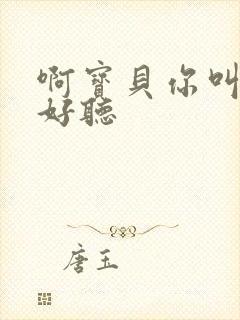 啊寶貝你叫
好聽
唐玉